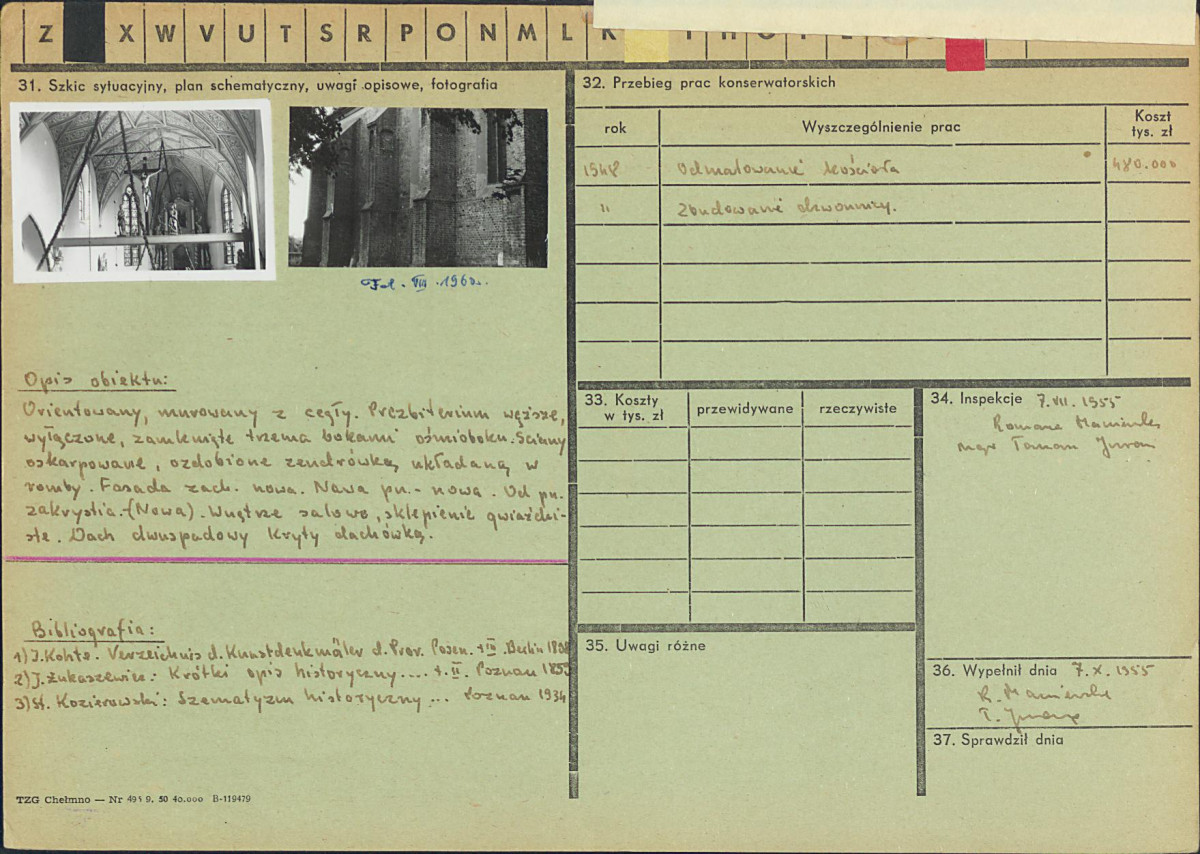 Z X W V U T S R P O N M L K
31. Szkic sytuacyjny, plan schematyczny, uwagi opisowe, fotografia
Fot. VIII. 1960r.
Opis obiektu:
Orientowany, murowany z cegły. Prezbiterium węższe,
wyłączone, zamknięte trzema bokami ośmioboku. Ściany
oskarpowane, ozdobione zendrówką układaną w
romby. Fasada zach. nowa. Nawa pn. - nowa. Od pn.
zakrystia - (Nowa). Wnętrze salowe, sklepienie gwiaździ-
ste. Dach dwuspadowy kryty dachówką.
Bibliografia:
1) J. Kohte. Verzeichnis d. Kunstdenkmäler d. Prov. Posen. t III. Berlin
2) J. Łukaszewicz: Krótki opis historyczny .... t. II. Poznań
3) St. Kozierowski: Szematyzm historyczny ... Poznań 1934
TZG Chełmno — Nr 9. 50 40.000 B-119479
32. Przebieg prac konserwatorskich
rok Wyszczególnienie prac Koszt tys. zł
1948 Odmalowanie kościoła 480.000
" Zbudowanie dzwonnicy.
33. Koszty w tys. zł przewidywane rzeczywiste
34. Inspekcje 7.VII. 1955
mgr
35. Uwagi różne
36. Wypełnił dnia 7.X.1955
37. Sprawdził dnia